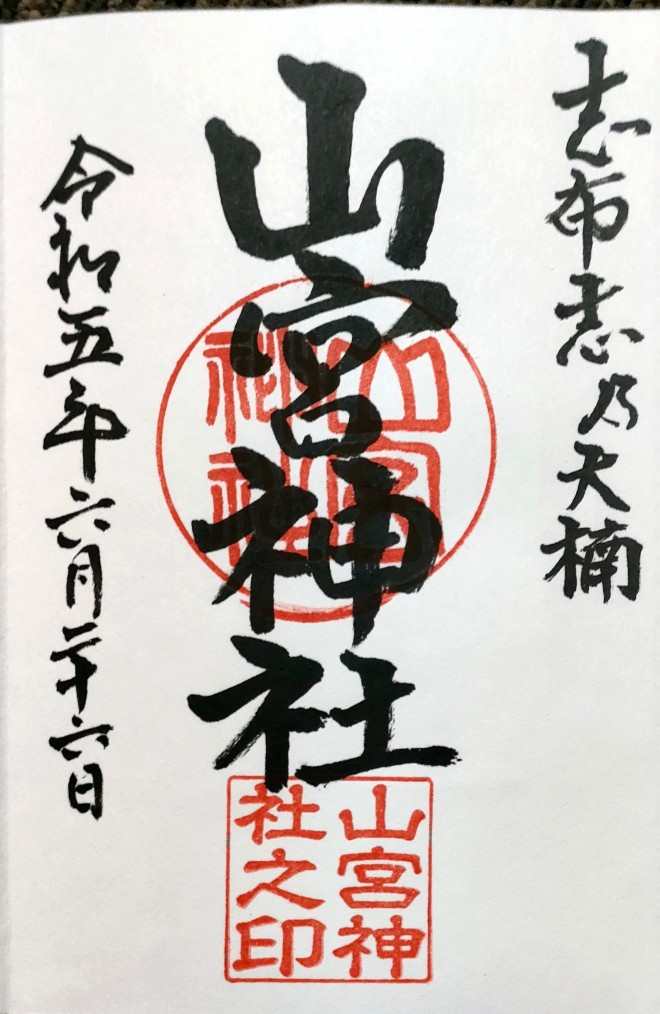 志布志乃大楠
山宮神社
山宮
神社
山宮神
社之印
令和五年六月二十六日